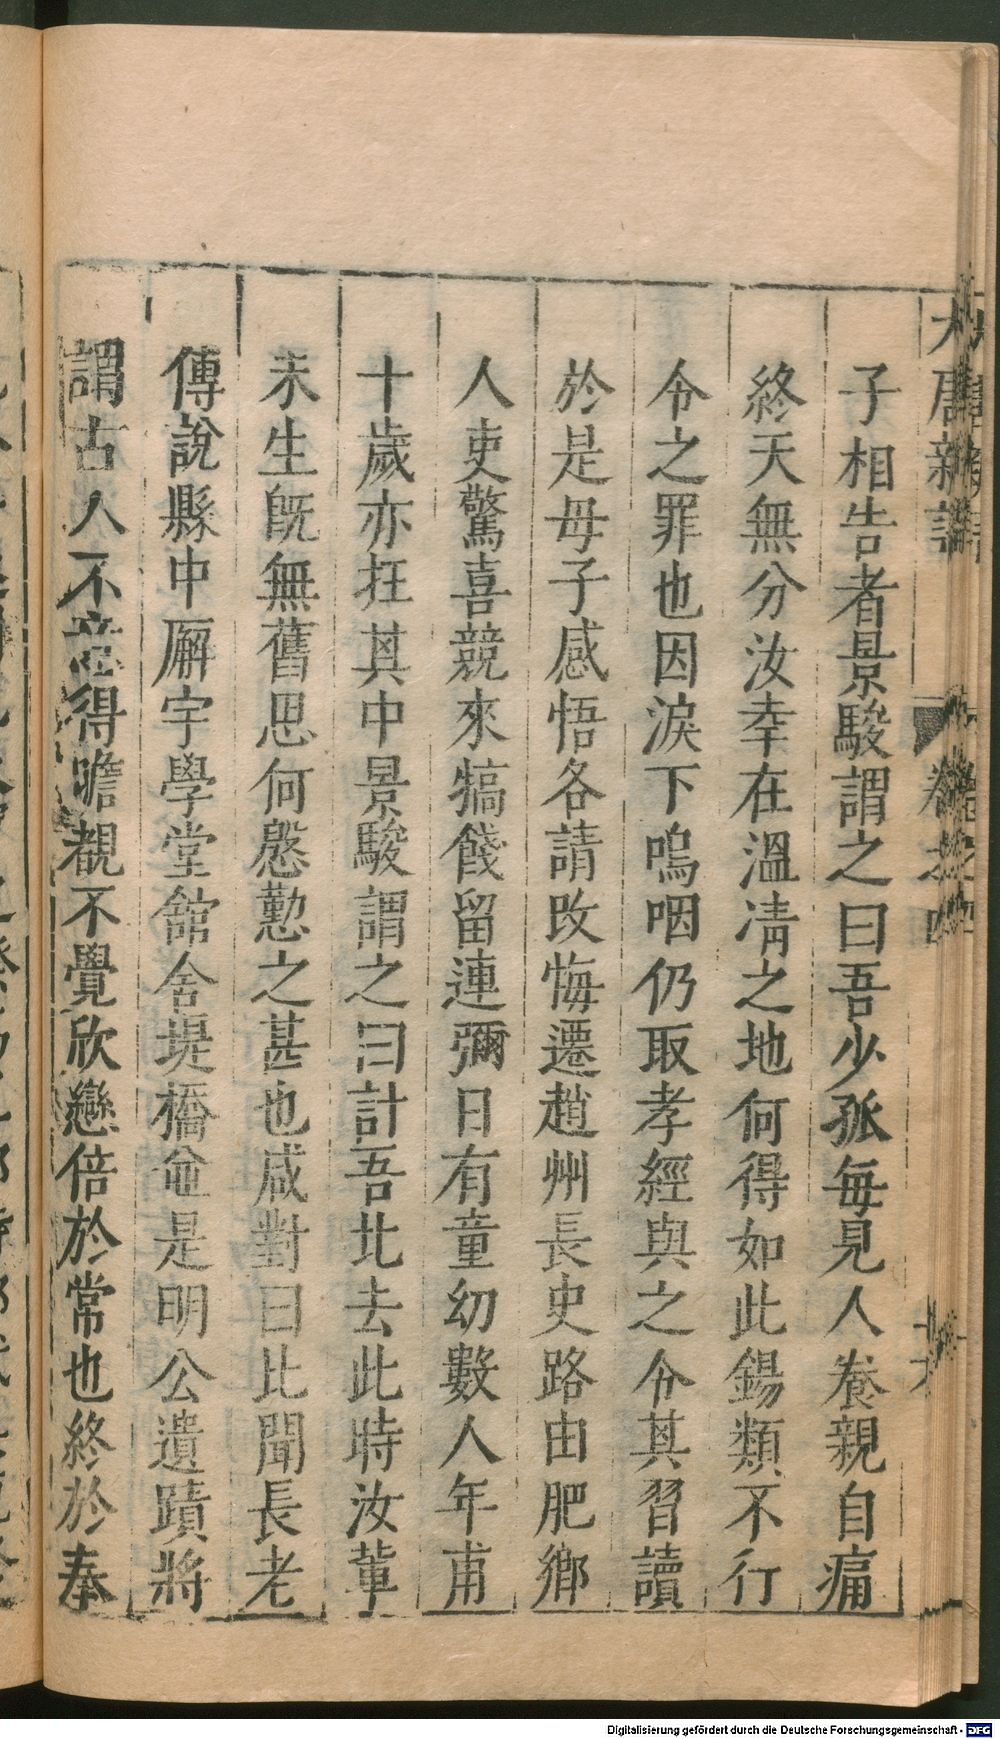 大唐新語 卷之四
子相告者景駿謂之曰吾少孤每見人養親自痛
終天無分汝幸在溫凊之地何得如此錫類不行
令之罪也因淚下嗚咽仍取孝經與之令其習讀
於是母子感悟各請改悔遷趙州長史路由肥鄉
人吏驚喜競來犒餞留連彌日有童幼數人年甫
十歲亦在其中景駿謂之曰計吾北去此時汝輩
未生旣無舊思何慇懃之甚也咸對曰比聞長老
傳說縣中廨宇學堂館舍堤橋並是明公遺蹟將
謂古人不意得瞻覩不覺欣戀倍於常也終於奉
Digitalisierung gefördert durch die Deutsche Forschungsgemeinschaft - DFG